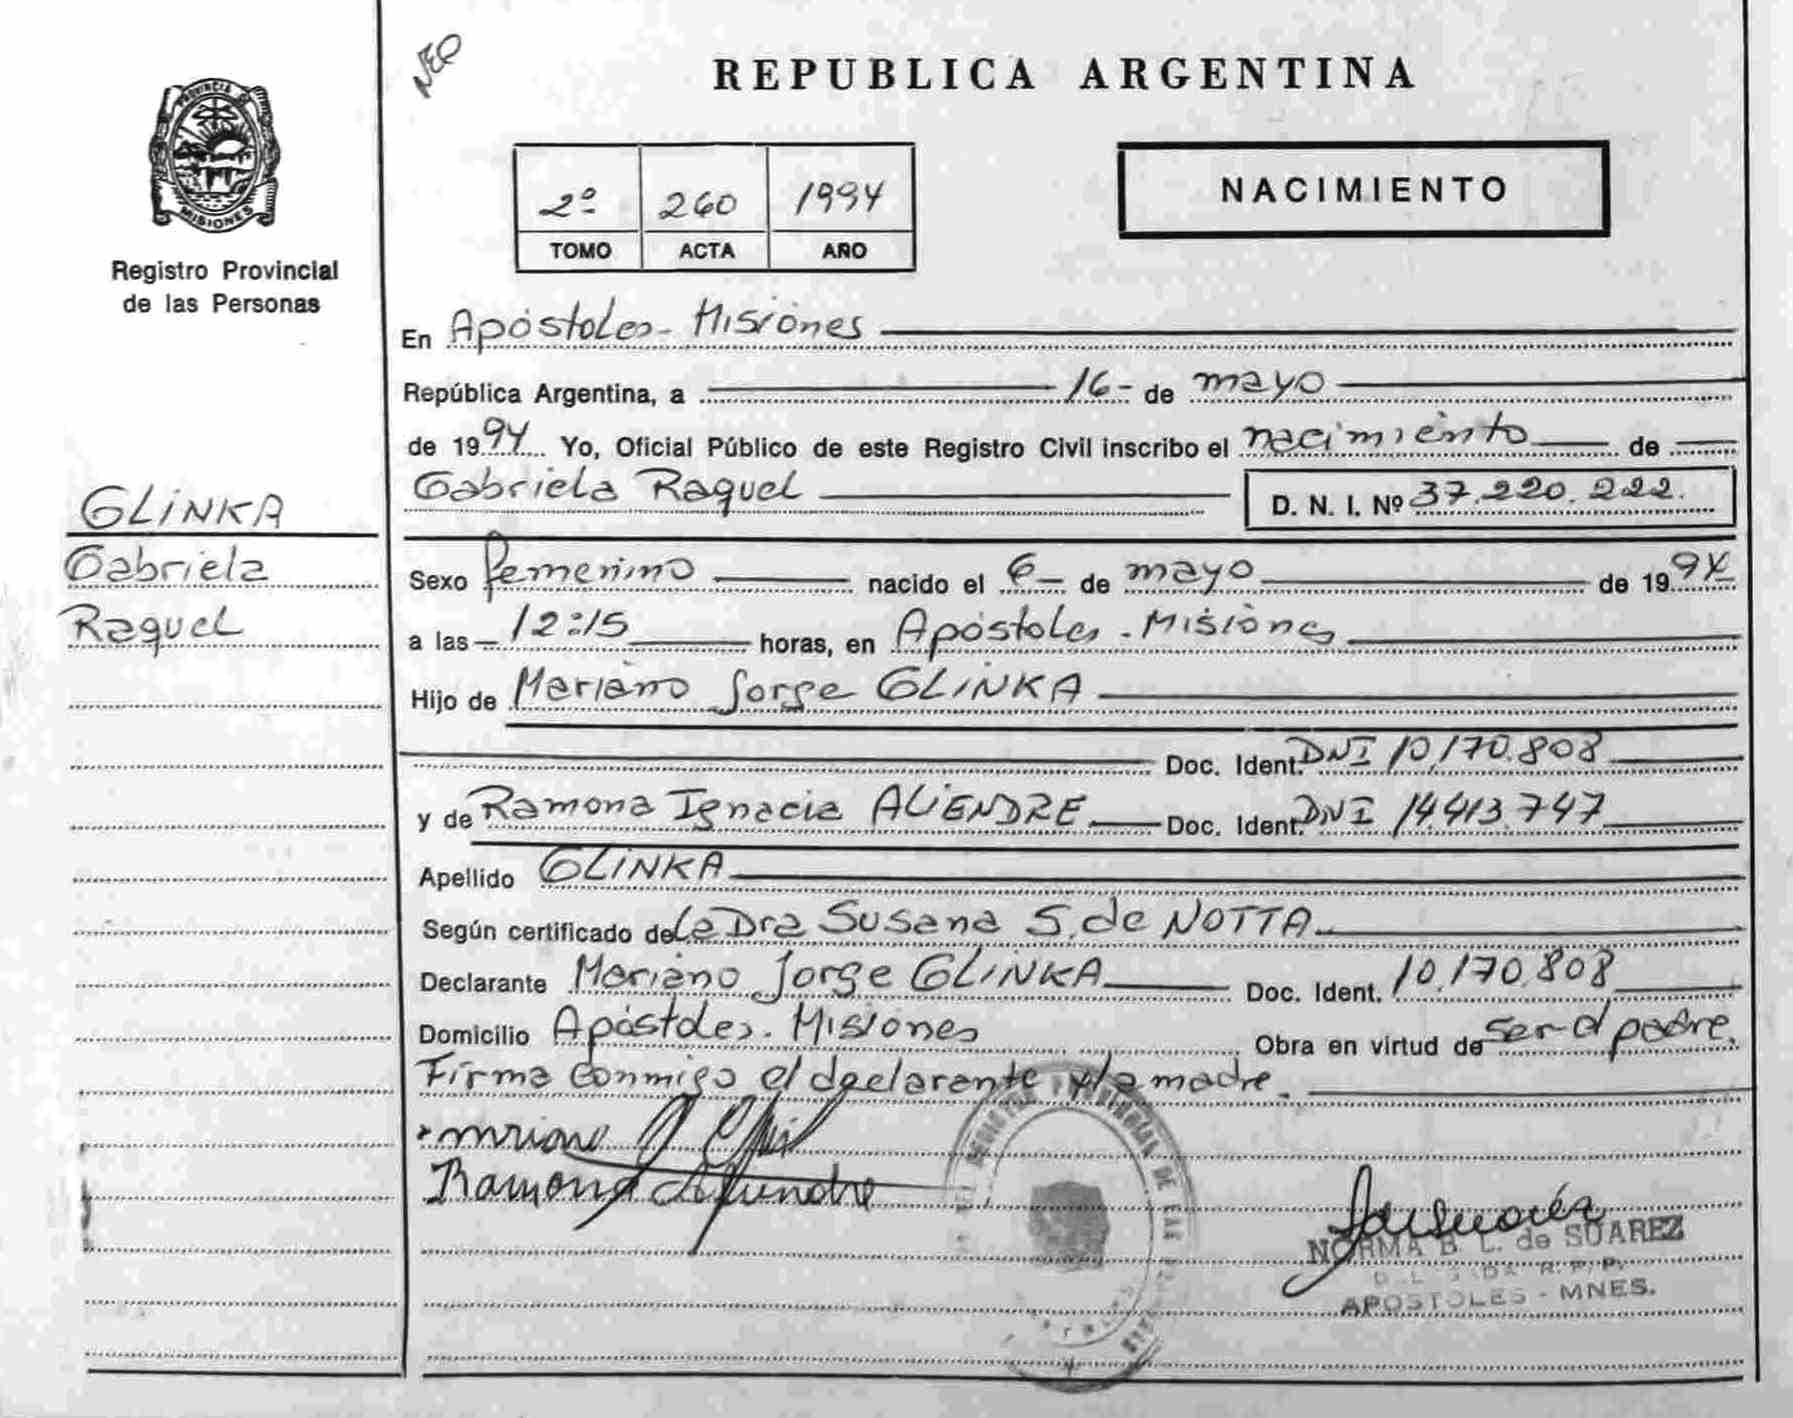 NER
REPUBLICA ARGENTINA
PROVINCIA DE
MISIONES
Registro Provincial
de las Personas
2º 260 1994
TOMO ACTA AÑO
NACIMIENTO
En Apóstoles - Misiones
República Argentina, a 16- de mayo
de 1994 Yo, Oficial Público de este Registro Civil inscribo el nacimiento de
Gabriela Raquel D. N. I. Nº 37.220.222.
GLINKA
Gabriela
Raquel
Sexo femenino nacido el 6- de mayo de 1994
a las 12:15 horas, en Apóstoles - Misiones
Hijo de Mariano Jorge GLINKA
Doc. Ident. DNI 10.170.808
y de Ramona Ignacia ALIENDRE Doc. Ident. DNI 14.413.747
Apellido GLINKA
Según certificado de La Dra Susana S. de NOTTA.
Declarante Mariano Jorge GLINKA Doc. Ident. 10.170.808
Domicilio Apóstoles. Misiones Obra en virtud de ser el padre.
Firma conmigo el declarante y la madre.
Ramona Aliendre
NORMA B. L. de SUAREZ
R. P. P.
APOSTOLES - MNES.